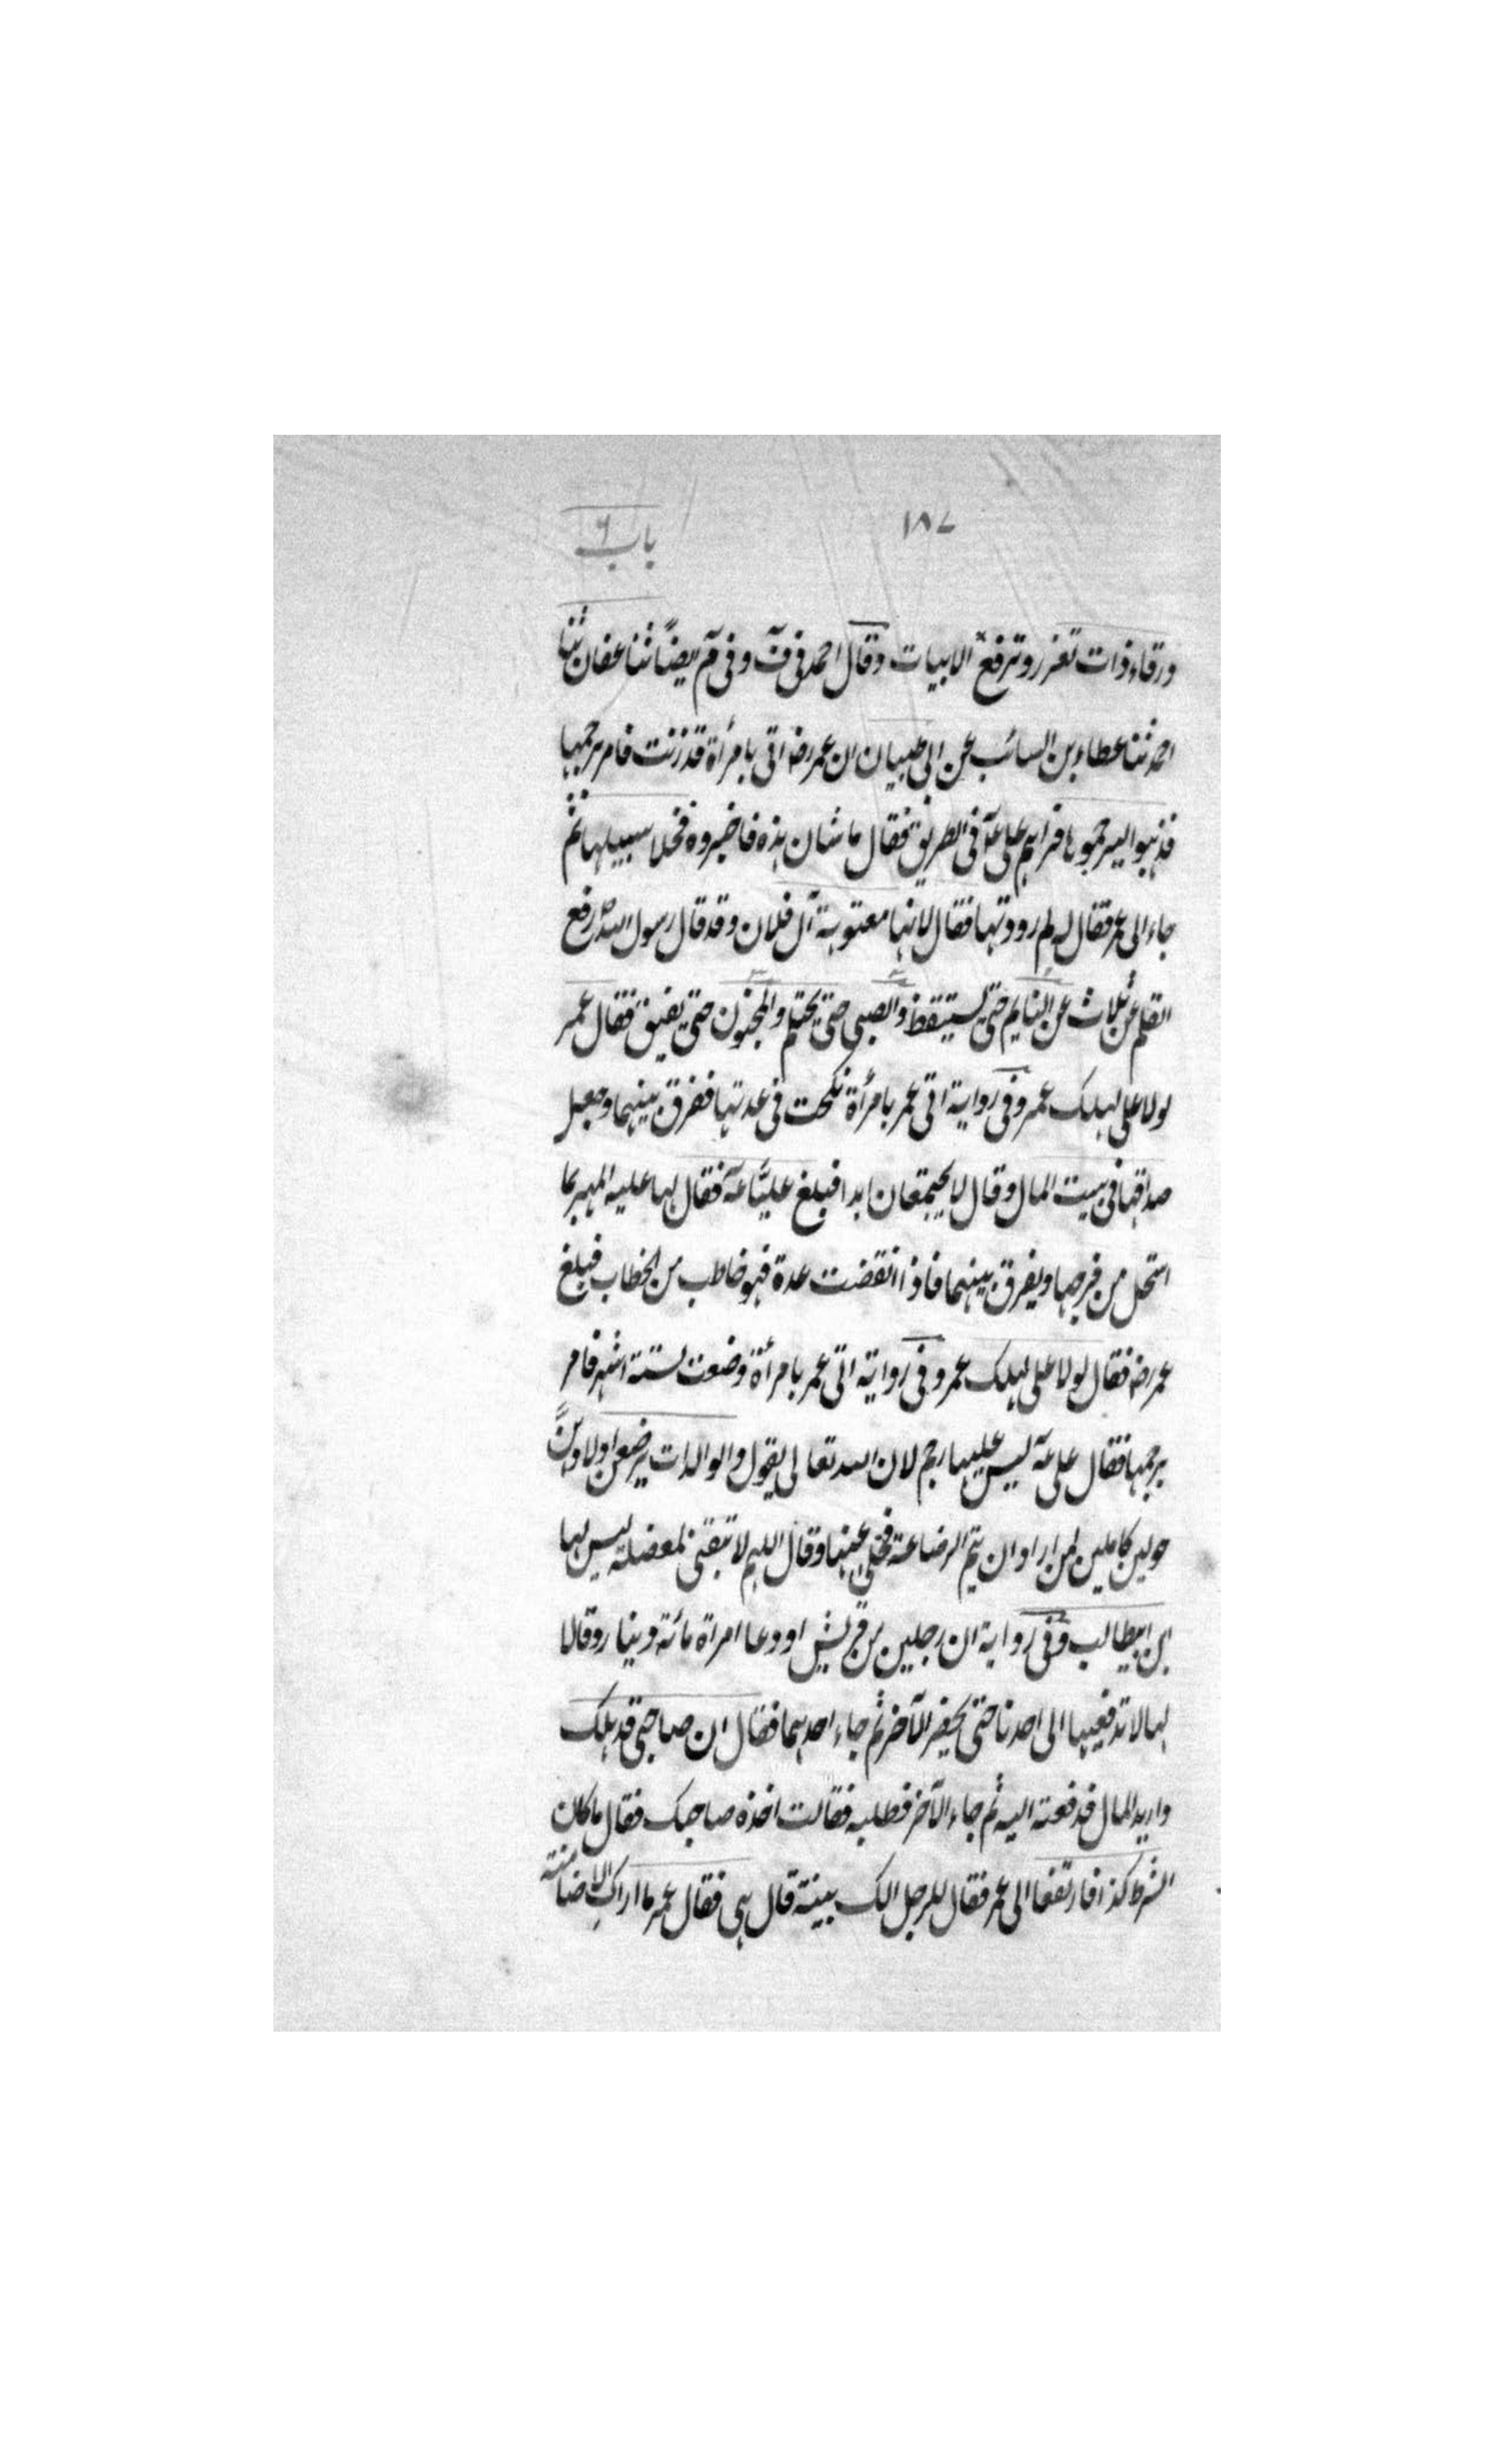 ١٨٧
باب ٦
ورقاء ذات تعزر وترفع الابيات وقال احمد فى ف وفى م ايضاً ثنا عفان ثنا
احمد ثنا عطاء بن السائب عن ابى ظبيان ان عمر رضہ اتى بامرأة قد زنت فامر برجمها
فذهبوا ليرجموها فراهم على عۤ فى الطريق فقال ما شان هذه فاخبروه فخلا سبيلها ثم
جاء الى عمر فقال له لم رددتها فقال لانها معتوهة آل فلان وقد قال رسول الله ص رفع
القلم عن ثلاث عن النايم حتى يستيقظ والصبى حتى يحتلم والمجنون حتى يفيق فقال عمر
لولا على لهلك عمر وفى رواية اتى عمر بامرأة نكحت فى عدتها ففرق بينهما وجعل
صداقها فى بيت المال وقال لا يجتمعان ابدا فبلغ عليّاً عۤه فقال لها عليه المهر بما
استحل من فرجها ويفرق بينهما فاذا انقضت عدة فهو خاطب من الخطاب فبلغ
عمر رضہ فقال لولا على لهلك عمر وفى رواية اتى عمر بامرأة وضعت لستة اشهر فامر
برجمها فقال على عۤه ليس عليها رجم لان الله تعالى يقول والوالدات يرضعن اولادهن
حولين كاملين لمن اراد ان يتم الرضاعة فخلى عنها وقال اللهم لا تبقنى لمعضلة ليس لها
ابن ابيطالب وفى رواية ان رجلين من قريش اودعا امراة مائة دينار وقالا
لها لا تدفعيها الى احدنا حتى يحضر الآخر ثم جاء احدهما فقال ان صاحبى قد هلك
واريد المال فدفعته اليه ثم جاء الآخر فطلبه فقالت اخذه صاحبك فقال ما كان
الشرط كذا فارتفعا الى عمر فقال للرجل الك بينة قال هى فقال عمر ما اراكِ الا ضامنة